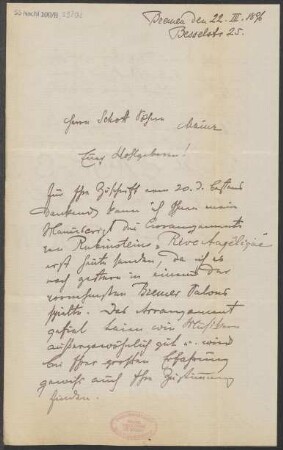 Bremen den 22. III. 1896
Besselstr 25.
Herrn Schott Söhne
Mainz
Euer Hochgeboren!
Für Ihre Zuschrift vom 20. d. bestens
dankend, kann ich Ihnen mein
Manuscript des Arrangements
von Rubinsteins „Rêve Angélique"
erst heute senden, da ich es
noch gestern in einem der
vornehmsten Bremer Salons
spielte. Das Arrangement
gefiel Laien wie Musikern
außergewöhnlich gut u. wird
bei Ihrer großen Erfahrung
gewiß auch Ihre Zustimmung
finden.